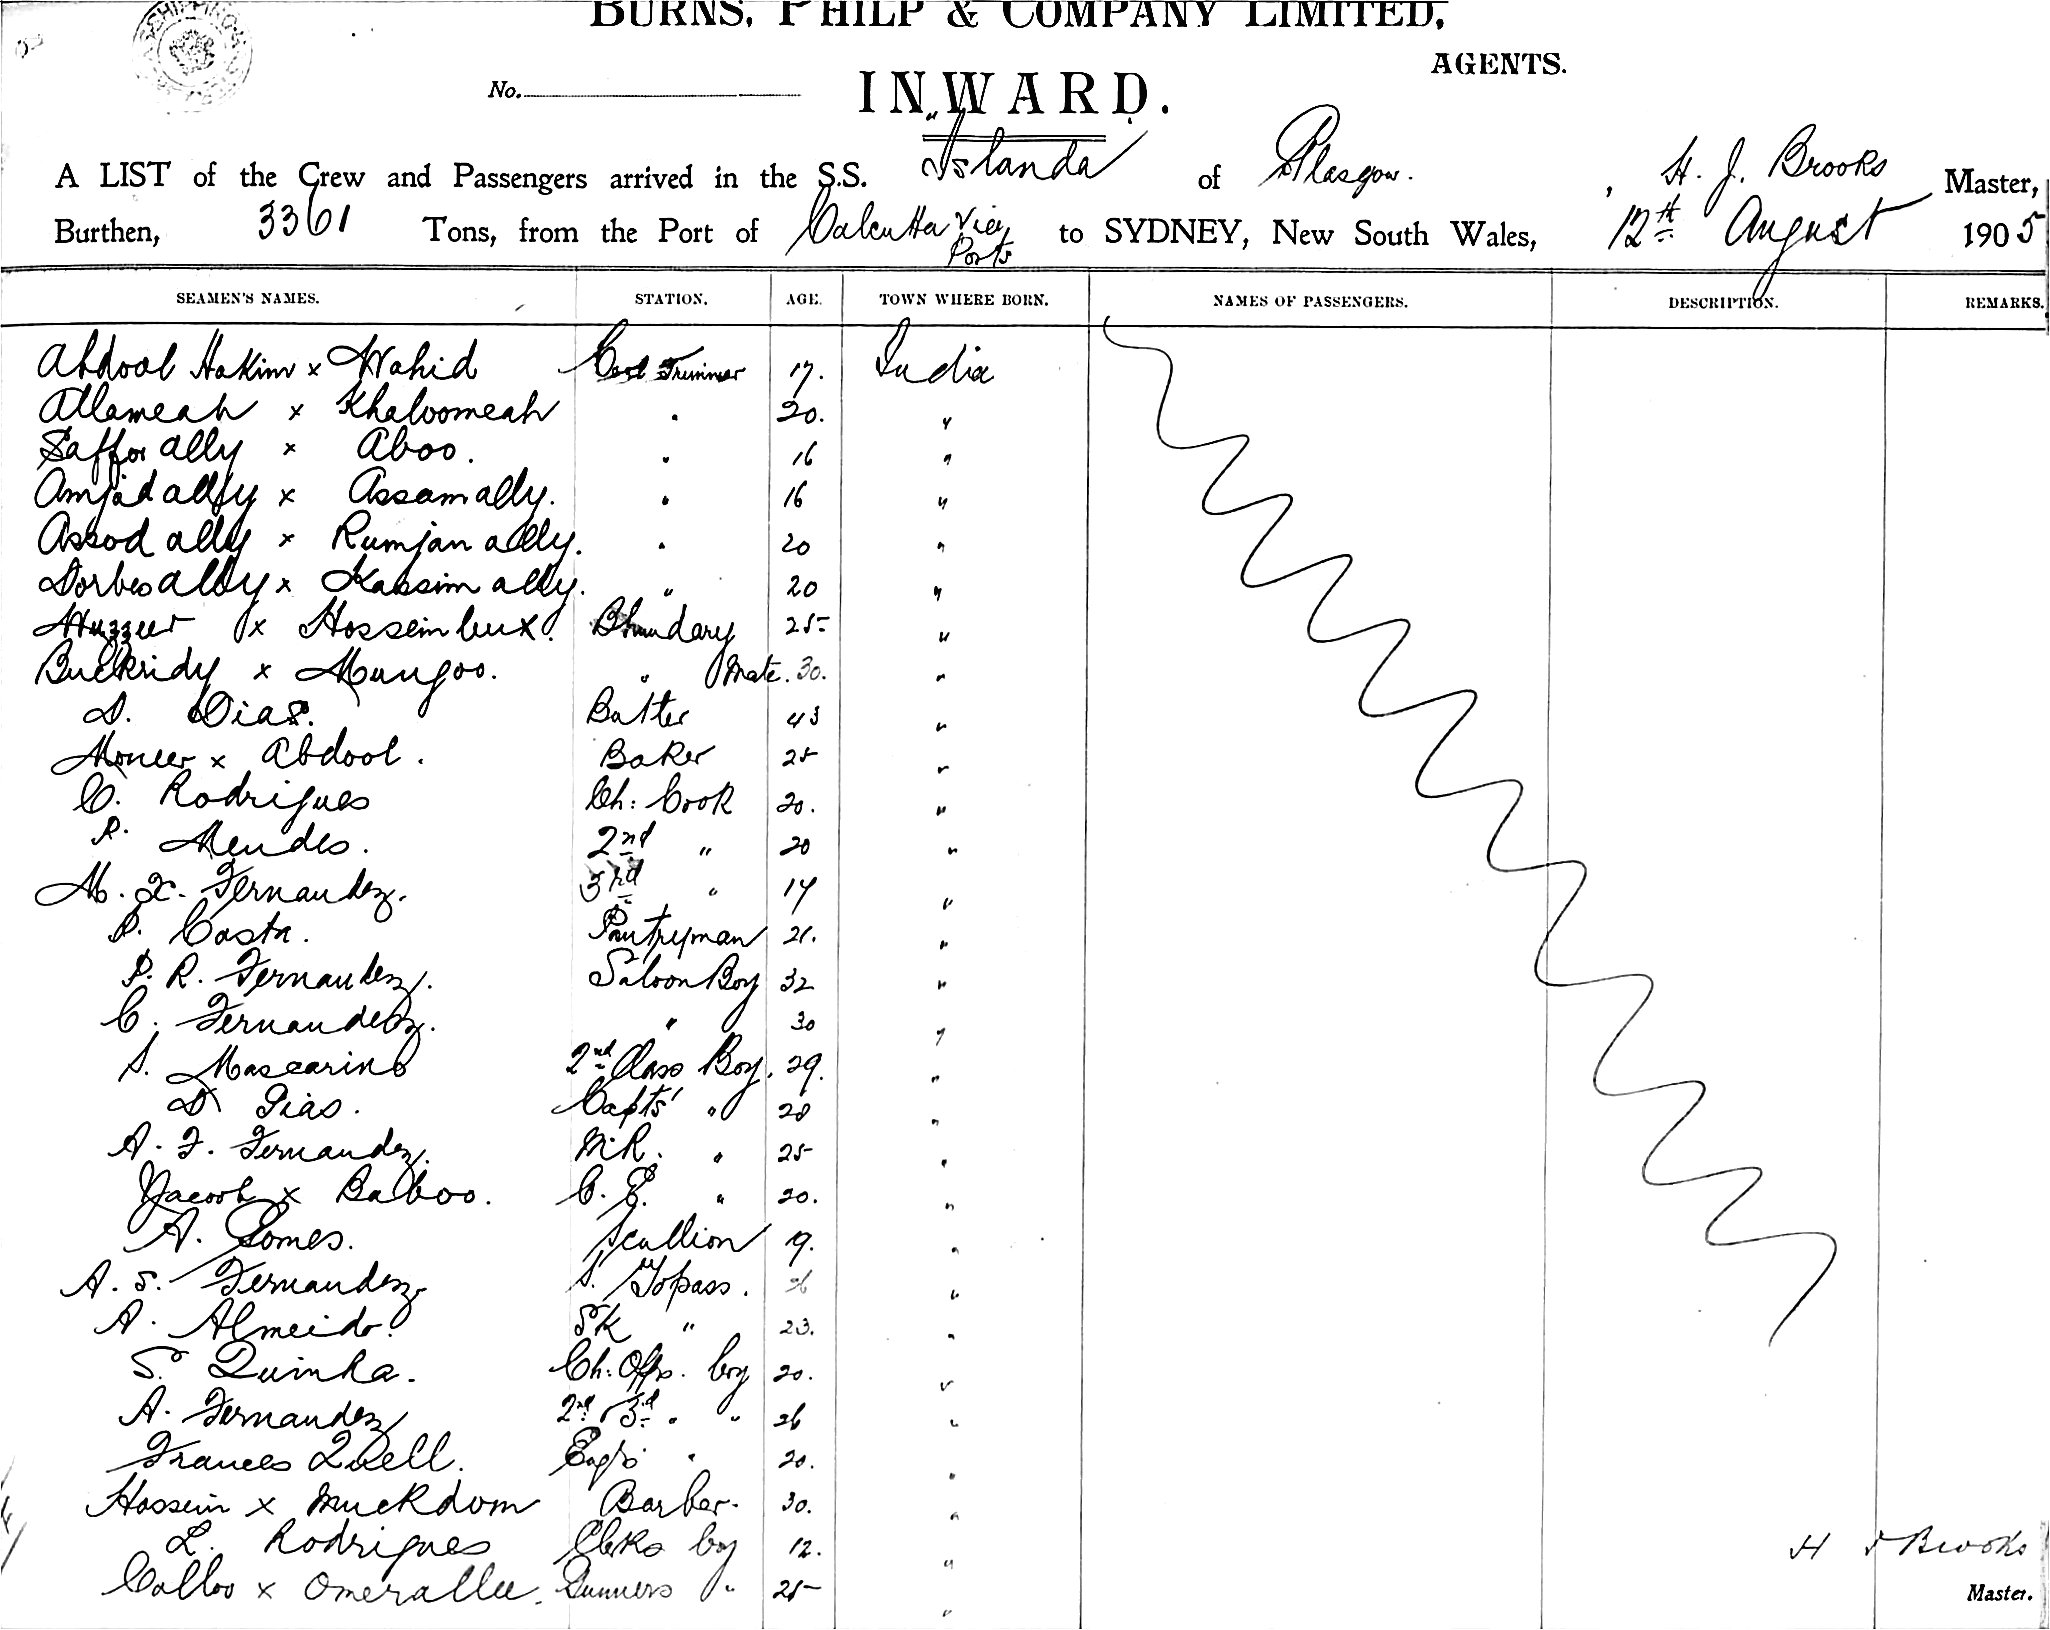 BURNS, PHILP & COMPANY LIMITED,
AGENTS.
No.
INWARD.
A LIST of the Crew and Passengers arrived in the S.S. "Islanda of Glasgow. , H. J. Brooks Master,
Burthen, 3361 Tons, from the Port of Calcutta via Ports to SYDNEY, New South Wales, 12th August 1905
SEAMEN'S NAMES. STATION. AGE. TOWN WHERE BORN. NAMES OF PASSENGERS. DESCRIPTION. REMARKS.
Abdool Hakim x Wahid Coal Trimmer 17. India
Allameah x Khaloomeah " 20. "
Saffor ally x Aboo. " 16 "
Amjad ally x Assam ally. " 16 "
Assod ally x Rumjan ally. " 20 "
Dorbes ally x Kassim ally. " 20 "
Huzzeer x Hossein bux. Bhundary 25 "
Buckridy x Mungoo. " Mate. 30. "
D. Dias. Butler 43 "
Moneer x Abdool. Baker 25 "
C. Rodrigues Ch: Cook 20. "
P. Mendes. 2nd " 20 "
M. X. Fernandez. 3rd " 17 "
P. Costa. Pantryman 21. "
P. R. Fernandez. Saloon Boy 32 "
C. Fernandez. " 30 "
S. Mascarino 2nd Class Boy. 29. "
D Dias. Capts' " 28 "
A. F. Fernandez. M.R. " 25 "
Yacoob x Baboo. C. E. " 20. "
A. Gomes. Scullion 19. "
A. S. Fernandez S. Topass. 26 "
A. Almeido. SK " 23. "
S. Quinha. Ch: Offs. boy 20. "
A. Fernandez 2nd 3rd " " 26 "
Frances Quell. Engrs " 20. "
Hossein x Muckdom Barber. 30. "
L. Rodrigues Clerks boy 12. "
Calloo x Omerallee. Gunners " 25 "
H J Brooks
Master.